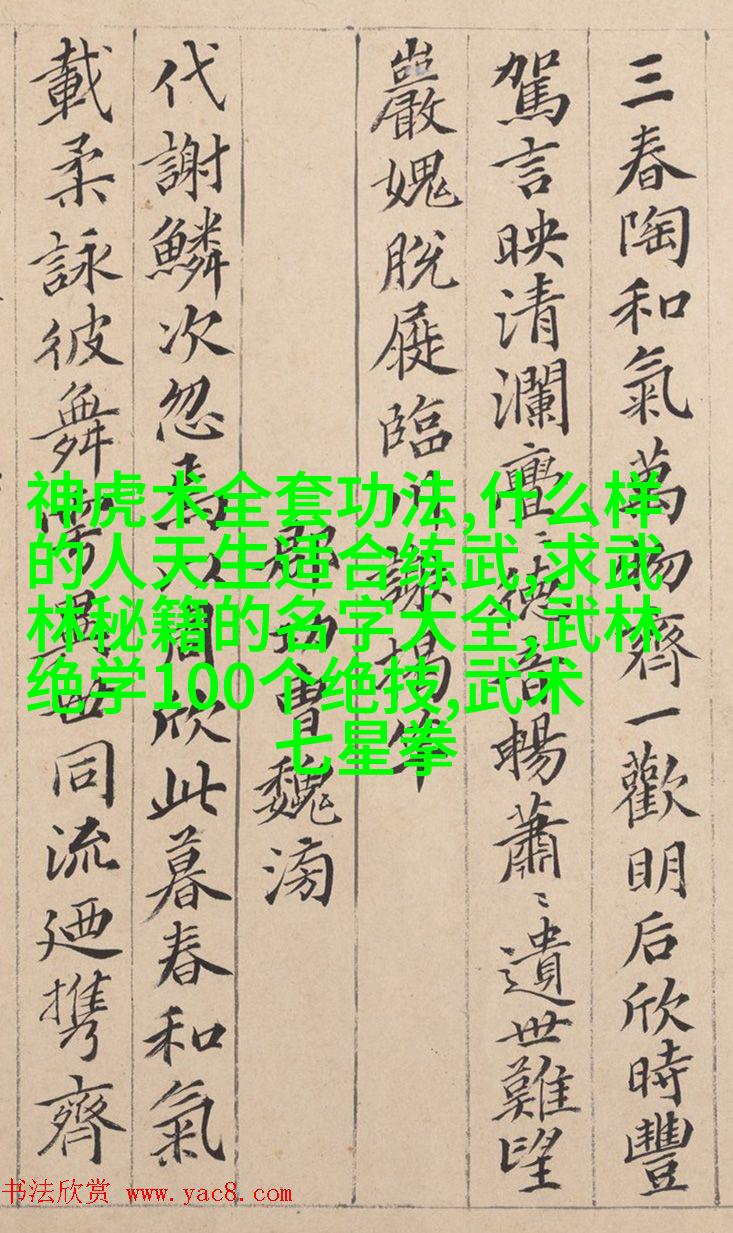 三春陶和氣萬物齊一歡明后欣時豐
駕言映清瀾亹〻德音暢蕭〻遺世難望
巖愧脫屣臨川謝揭竿
郡功曹魏滂
代謝鱗次忽焉以周欣此暮春和氣
載柔詠彼舞雩異世同流迺携齊
神虎术全套功法,什么样
的人天生适合练武,求武
林秘籍的名字大全,武林
绝学100个绝技,武术
七星拳
书法欣赏 www.yac8.com